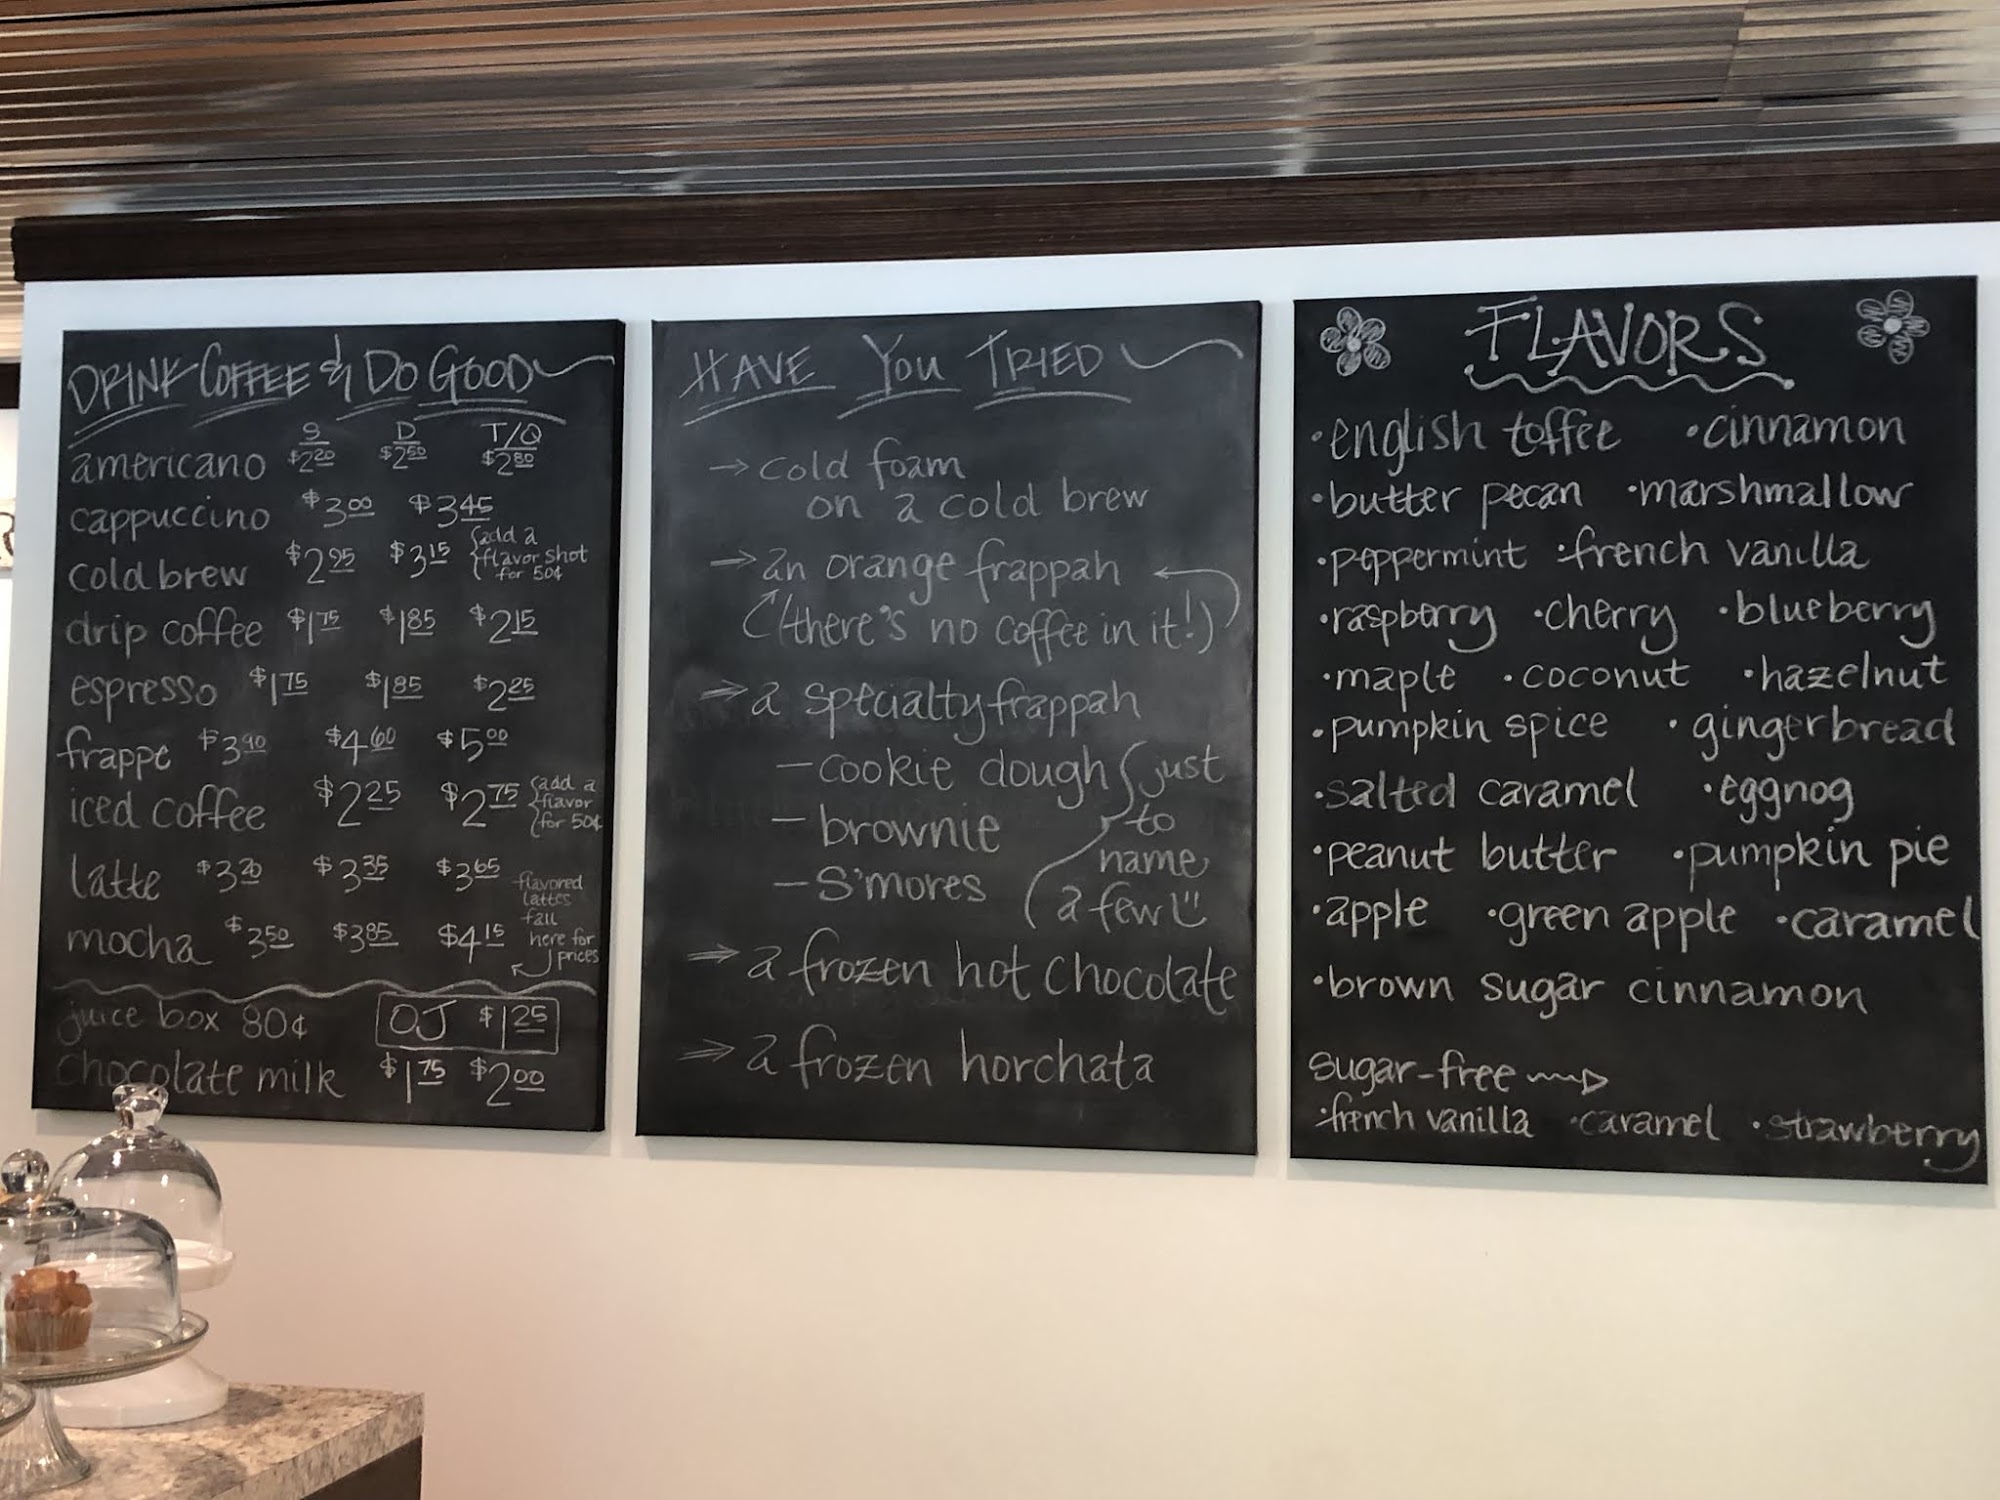 DRINK COFFEE & DO GOOD
S D T/Q
americano $2.20 $2.50 $2.80
cappuccino $3.00 $3.45
cold brew $2.95 $3.15 {add a
flavor shot
for 50¢
drip coffee $1.75 $1.85 $2.15
espresso $1.75 $1.85 $2.25
frappe $3.90 $4.60 $5.00
iced coffee $2.25 $2.75 {add a
flavor
for 50¢
latte $3.20 $3.35 $3.65
mocha $3.50 $3.85 $4.15
flavored
lattes
fall
here for
prices
juice box 80¢ OJ $1.25
chocolate milk $1.75 $2.00
HAVE YOU TRIED
→ cold foam
on a cold brew
→ an orange frappah
(there's no coffee in it!)
→ a specialty frappah
- cookie dough
- brownie
- S'mores
just
to
name
a few
→ a frozen hot chocolate
→ a frozen horchata
FLAVORS
•english toffee •cinnamon
•butter pecan •marshmallow
•peppermint •french vanilla
•raspberry •cherry •blueberry
•maple •coconut •hazelnut
•pumpkin spice •gingerbread
•salted caramel •eggnog
•peanut butter •pumpkin pie
•apple •green apple •caramel
•brown sugar cinnamon
sugar-free →
•french vanilla •caramel •strawberry